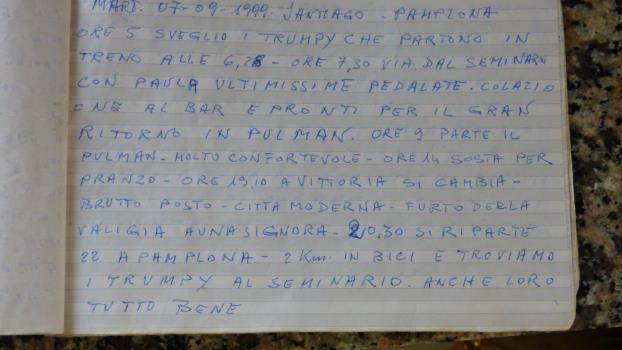 MART. 07-09-1999. SANTIAGO - PAMPLONA
ORE 5 SVEGLIO I TRUMPY CHE PARTONO IN
TRENO ALLE 6,28 - ORE 7,30 VIA DAL SEMINARIO
CON PAULA ULTIMISSIME PEDALATE. COLAZIO
= NE AL BAR E PRONTI PER IL GRAN
RITORNO IN PULMAN. ORE 9 PARTE IL
PULMAN - MOLTO CONFORTEVOLE - ORE 14 SOSTA PER
PRANZO - ORE 19,10 A VITTORIA SI CAMBIA -
BRUTTO POSTO - CITTA MODERNA - FURTO DELLA
VALIGIA A UNA SIGNORA - 20,30 SI RIPARTE
22 A PAMPLONA - 2 Km. IN BICI E TROVIAMO
I TRUMPY AL SEMINARIO. ANCHE LORO
TUTTO BENE